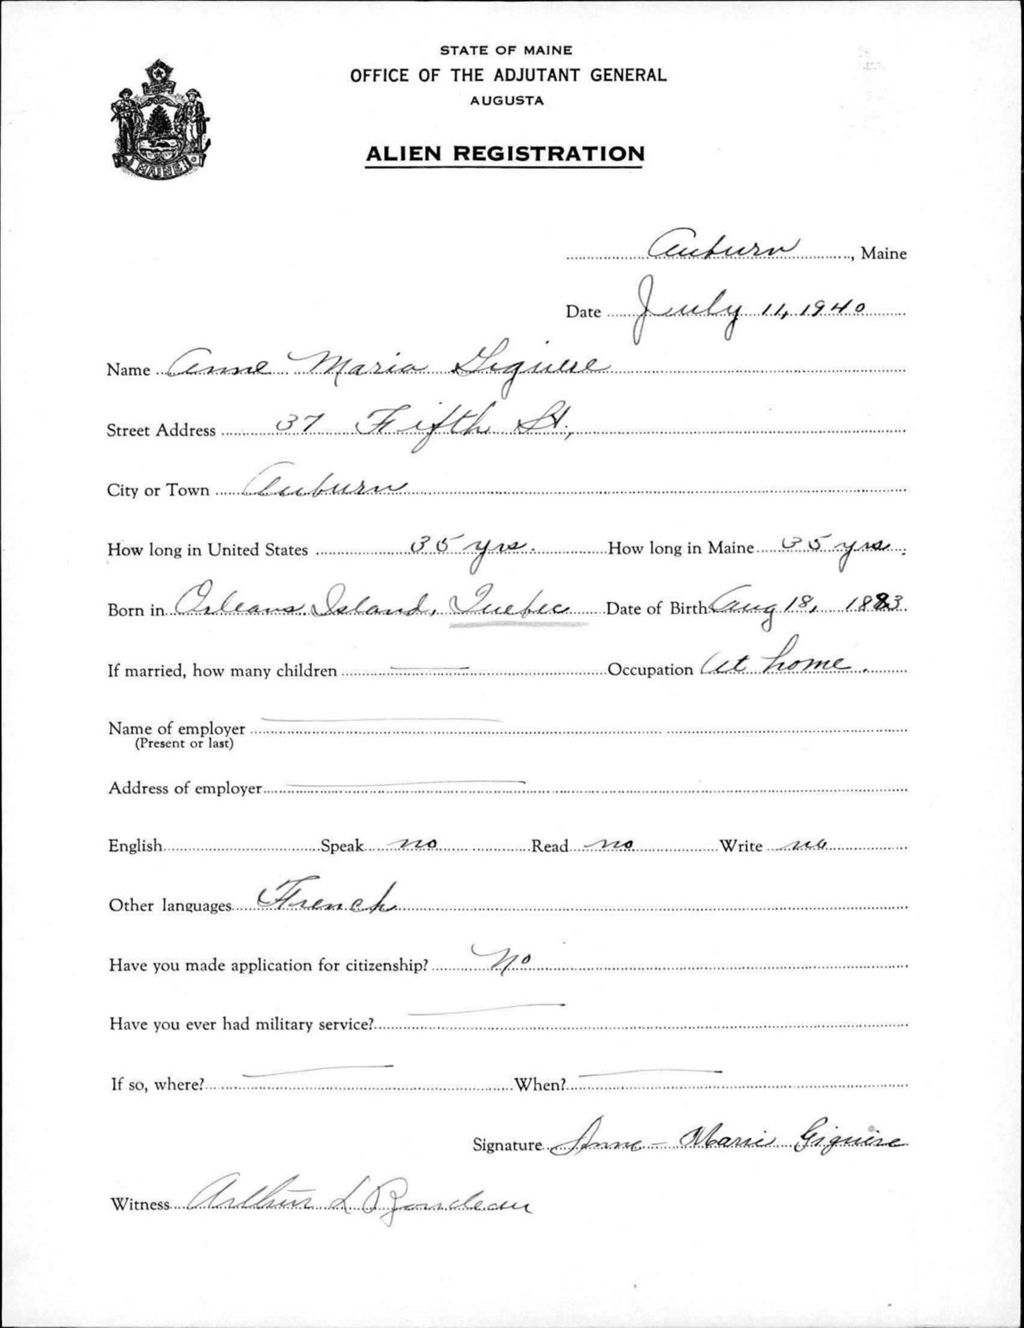 STATE OF MAINE
OFFICE OF THE ADJUTANT GENERAL
AUGUSTA
ALIEN REGISTRATION
MAINE
Auburn, Maine
Date July 11, 1940
Name Anne Maria Giguere
Street Address 37 Fifth St.,
City or Town Auburn
How long in United States 35 yrs. How long in Maine 35 yrs.
Born in Orleans Island, Quebec Date of Birth Aug 18, 1883.
If married, how many children — Occupation At home.
Name of employer —
(Present or last)
Address of employer —
English Speak no Read no Write no
Other languages French
Have you made application for citizenship? No
Have you ever had military service? —
If so, where? — When? —
Signature Anne-Marie Giguere
Witness Arthur L Rondeau